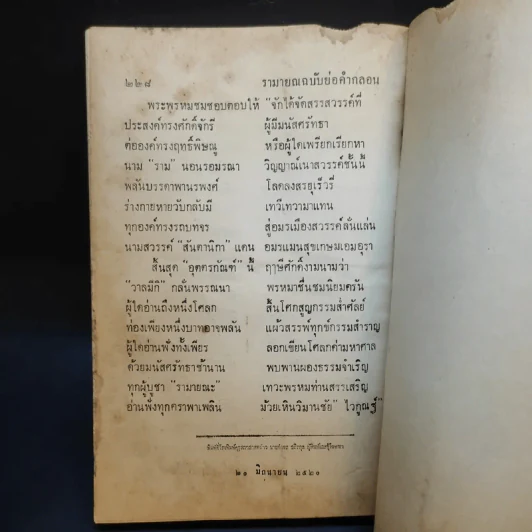 ๒๒๘ รามายณฉบับย่อคำกลอน
พระพรหมชมชอบตอบให้ "จักได้จัดสรรสวรรค์ที่
ประสงค์ทรงศักดิ์จักรี ผู้มีมนัสศรัทธา
ต่อองค์ทรงฤทธิ์พิษณู หรือผู้ใดเพรียกเรียกหา
นาม "ราม" นอนรอมรณา วิญญาณ์เนาสวรรค์ชั้นนี้
พลันบรรดาพานรพงศ์ โลดลงสรยุเร็วรี่
ร่างกายหายวับกลับมี เทวีเทวามาแทน
ทุกองค์ทรงรถบทจร สู่อมรเมืองสวรรค์ลั่นแล่น
นามสวรรค์ "สันตานิกา" แดน อมรแมนสุขเกษมเอมอุรา
สิ้นสุด "อุตตรกัณฑ์" นี้ ฤๅษีศักดิ์งามนามว่า
"วาลมีกิ" กลั่นพรรณนา พรหมาชื่นชมนิยมครัน
ผู้ใดอ่านถึงหนึ่งโศลก สิ้นโศกสูญกรรมส่ำศัลย์
ท่องเพียงหนึ่งบาทอาจพลัน แผ้วสรรพ์ทุกข์กรรมสำราญ
ผู้ใดอ่านฟังทั้งเพียร ลอกเขียนโศลกคำมหาศาล
ด้วยมนัสศรัทธาช้านาน พบพานผองธรรมจำเริญ
ทุกผู้บูชา "รามายณะ" เทวะพรหมท่านสรรเสริญ
อ่านฟังทุกคราพาเพลิน ม้วยเหินวิมานชัย "ไวกูณฐ์"
๒๑ มิถุนายน ๒๕๒๑